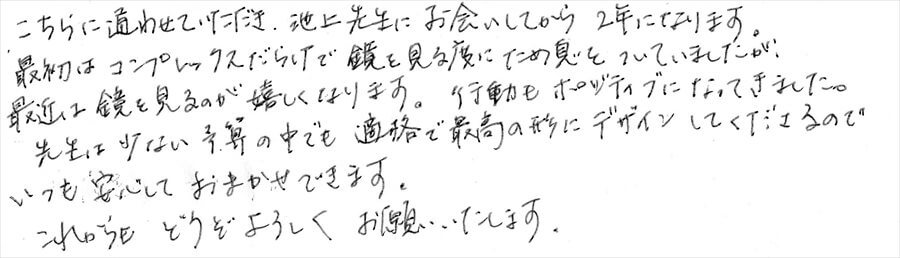 こちらに通わせていただき、池上先生にお会いしてから2年になります。
最初はコンプレックスだらけで鏡を見る度にため息をついていましたが、
最近は鏡を見るのが嬉しくなります。行動もポジティブになってきました。
先生は少ない予算の中でも適格で最高の形にデザインしてくださるので
いつも安心しておまかせできます。
これからもどうぞよろしくお願いいたします。